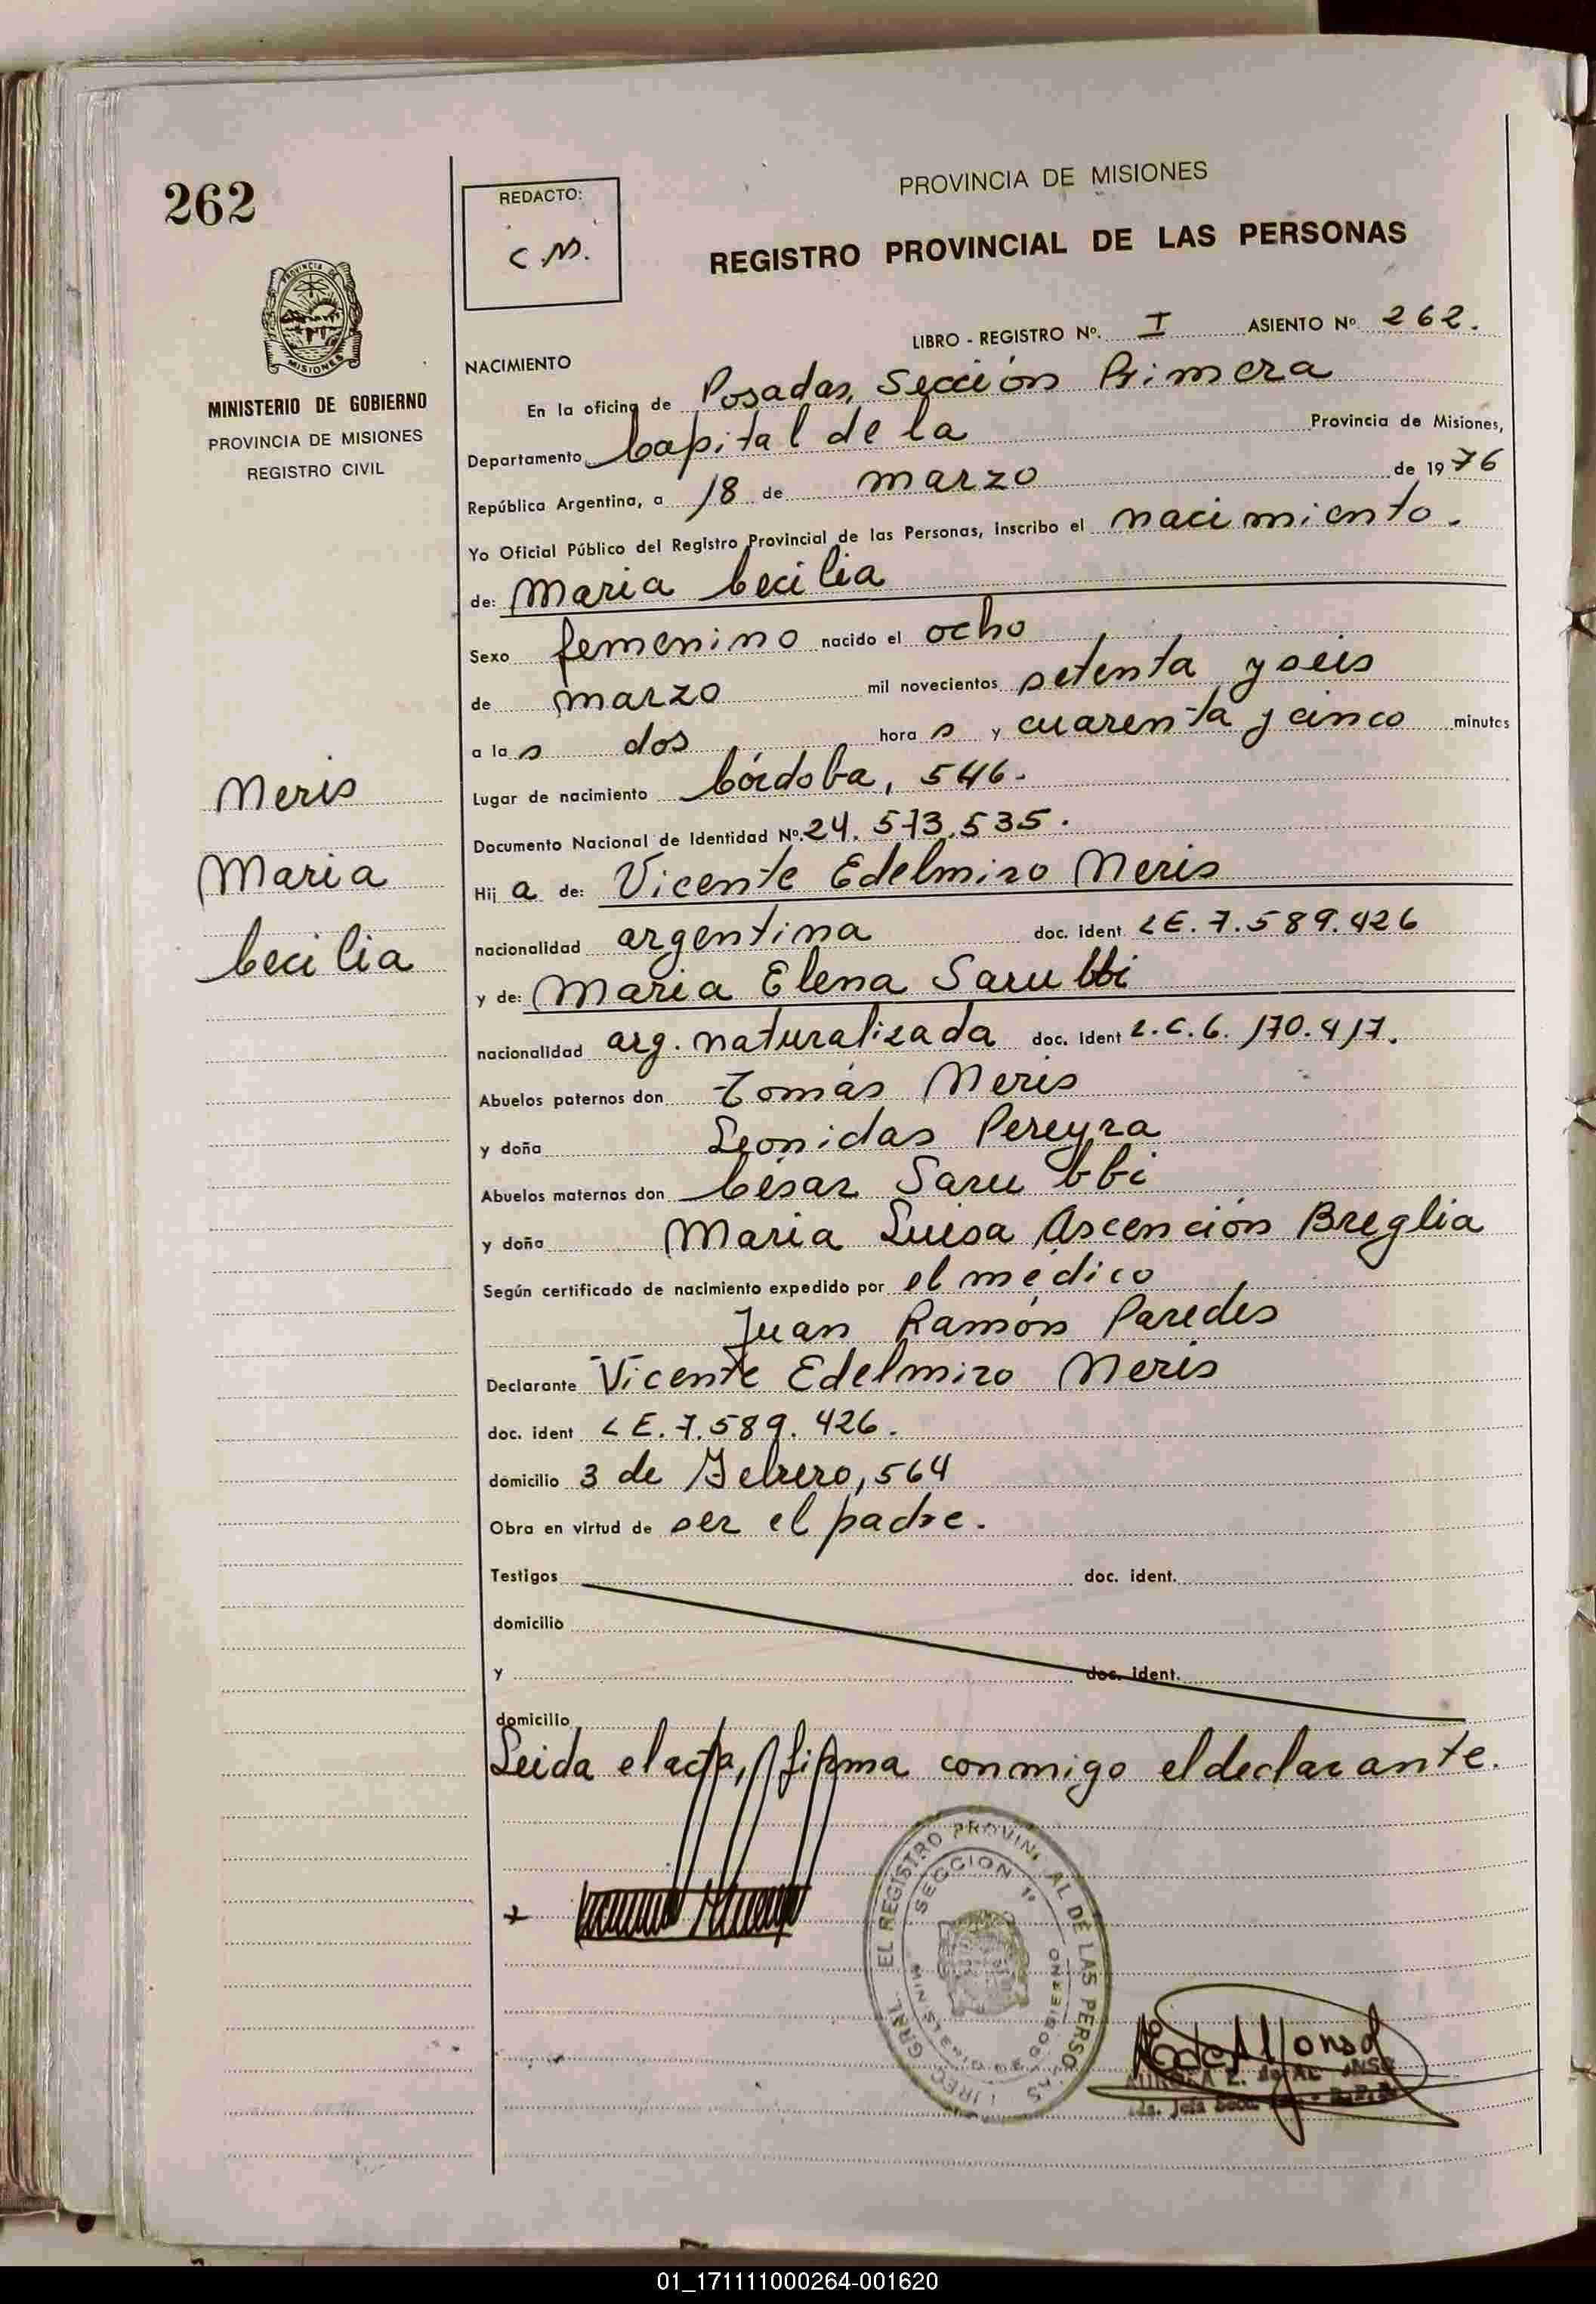 262
REDACTO:
C.M.
PROVINCIA DE MISIONES
REGISTRO PROVINCIAL DE LAS PERSONAS
PROVINCIA DE
MISIONES
MINISTERIO DE GOBIERNO
PROVINCIA DE MISIONES
REGISTRO CIVIL
LIBRO - REGISTRO Nº. I ASIENTO Nº 262.
NACIMIENTO
En la oficina de Posadas, Sección Primera
Departamento Capital de la Provincia de Misiones,
República Argentina, a 18 de marzo de 1976
Yo Oficial Público del Registro Provincial de las Personas, inscribo el nacimiento.
de: Maria Cecilia
Sexo femenino nacido el ocho
de marzo mil novecientos setenta y seis
a la s dos hora s y cuarenta y cinco minutos
Lugar de nacimiento Córdoba, 546.
Documento Nacional de Identidad Nº. 24.573.535.
Hij a de: Vicente Edelmiro Neris
nacionalidad argentina doc. ident LE. 7.589.426
y de: Maria Elena Sarubbi
nacionalidad arg. naturalizada doc. ident L.C. 6.170.417.
Abuelos paternos don Tomás Neris
y doña Leonidas Pereyra
Abuelos maternos don César Sarubbi
y doña Maria Luisa Ascención Breglia
Según certificado de nacimiento expedido por el médico
Juan Ramón Paredes
Declarante Vicente Edelmiro Neris
doc. ident LE. 7.589.426.
domicilio 3 de Febrero, 564
Obra en virtud de ser el padre.
Testigos doc. ident.
domicilio
y doc. ident.
domicilio
Leida el acta, firma conmigo el declarante.
Neris
Maria
Cecilia
EL REGISTRO DE LAS
SECCION 1ª
GOBIERNO
AURORA E. de
01_171111000264-001620